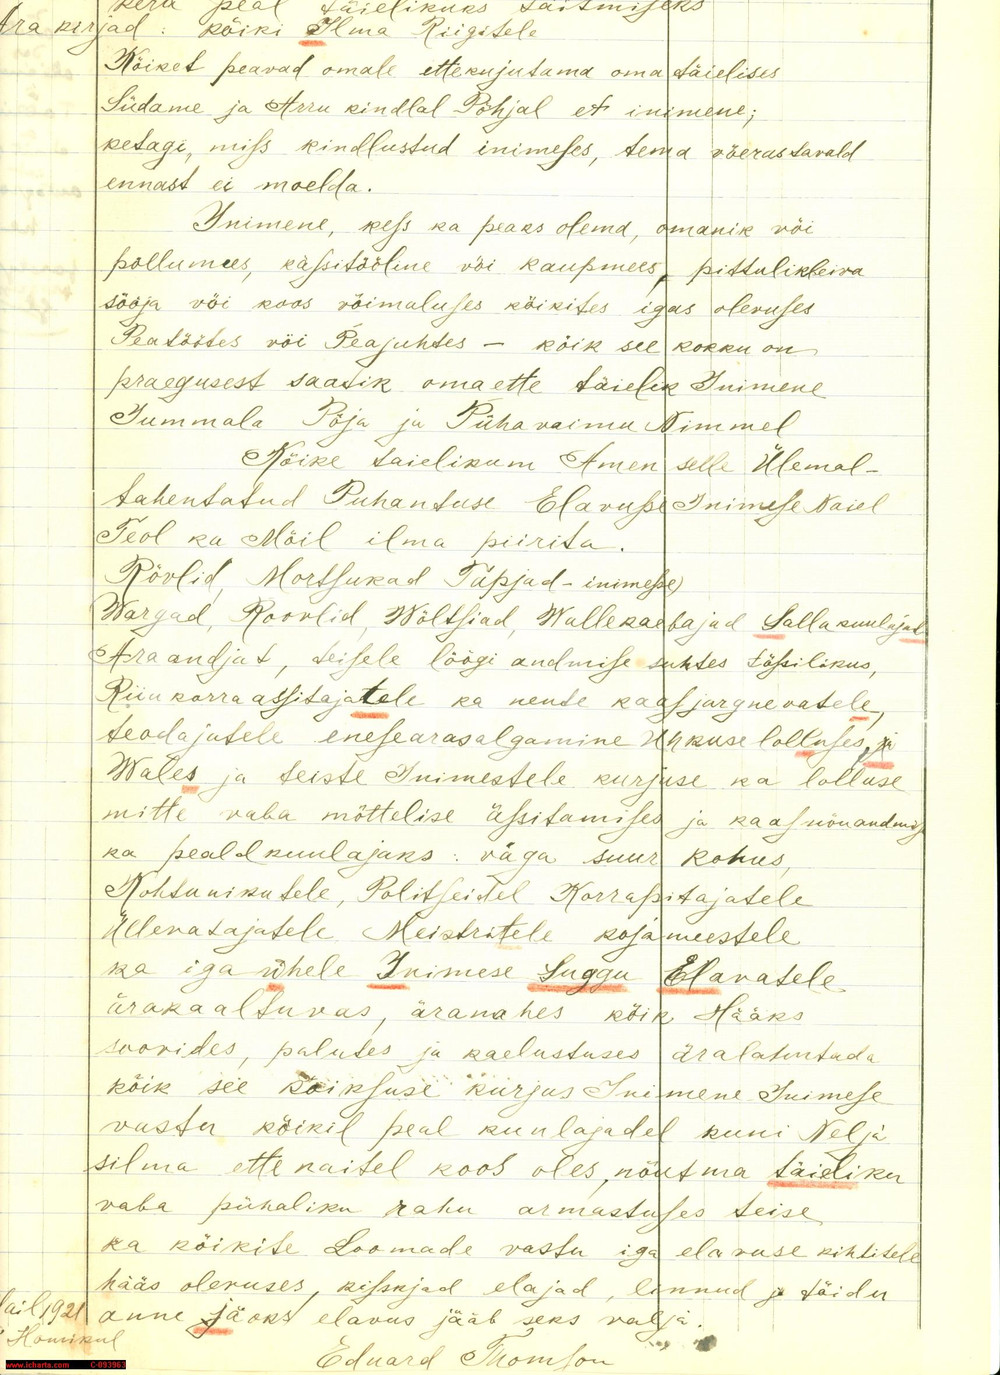 peal täielikuks täitmiseks
Ära kirjad : köiki Ilma Riigitele
Köiket peavad omale ettekujutama oma täielises
Südame ja Arru kindlal Pöhjal et inimene;
ketagi, miss kindlustud inimeses, tema vöerastavald
ennast ei moelda.
Inimene, kess ka peaks olema, omanik vöi
pöllumees, kässitööline vöi kaupmees, pittulikleiva
sööja vöi koos vöimaluses köikites igas olevuses
Peatöötes vöi Peajuhtes — köik see kokku on
praegusest saatik omaette täielik Inimene
Jummala Pöja ja Püha vaimu Nimmel
Köike taielikum Amen selle Ülemal-
tahentatud Puhantuse Elavuse Inimese Naiel
Teol ka Möil ilma piirita.
Rövlid, Mortsukad Tapjad-inimese
Wargad, Roovlid, Wöltsiad, Wallekaebajad Sallakuulajad
Ara andjat, teisele löögi andmise suhtes tössilikus,
Riiukorraassitajatele ka nente kaasjargnevatele,
teodajatele enesearasalgamine Uhkuse lolluses, ja
Wales ja teiste Inimestele kurjuse ka lolluse
mitte vaba möttelise ässitamises ja kaasnöuandmise
ka pealdkuulajaks : väga suur kohus,
Kohtunikutele, Politseitel Korrapitajatele
Üllevatajatele Meistritele kojameestele
ka iga ühele Inimese Suggu Elavatele
ärakaaltuvas, äranahes köik Hääks
soovides, palutes ja kaelustuses äralahutada
köik see köiksuse kurjus Inimene Inimese
vastu köikil peal kuulajadel kuni Nelja
silma ette naitel koos oles, nöutma täieliku
vaba pühaliku rahu armastuses teise
ka köikite Loomade vastu iga elavuse kihtitele
hääs olevuses, kisskjad elajad, linnud ja täidu
anne jäoks elavus jääb seks valja.
1921
Homikul
Eduard Thomson
www.icharta.com C-093963